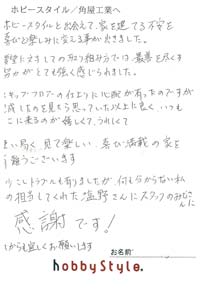 ホビースタイル／角屋工業へ
ホビースタイルと出会えて、家を建てる不安を
喜びと楽しみに変える事が出来ました。
対しての取り組み方では、最善を尽くす
努力がとても強く感じられました。
スキップフロアーの仕上りに心配が有ったのですが
完成したのを見たら思っていた以上に良く、いつも
ここに来るのが嬉しくて、うれしくて
良い 見て楽しい、喜び満載の家を
有難うございます
少こしトラブルも有りましたが、何も分からない私
の担当してくれた塩野さんにスタッフのみなさんに
感謝です！
これからも宜しくお願いします
お名前
hobbyStyle.